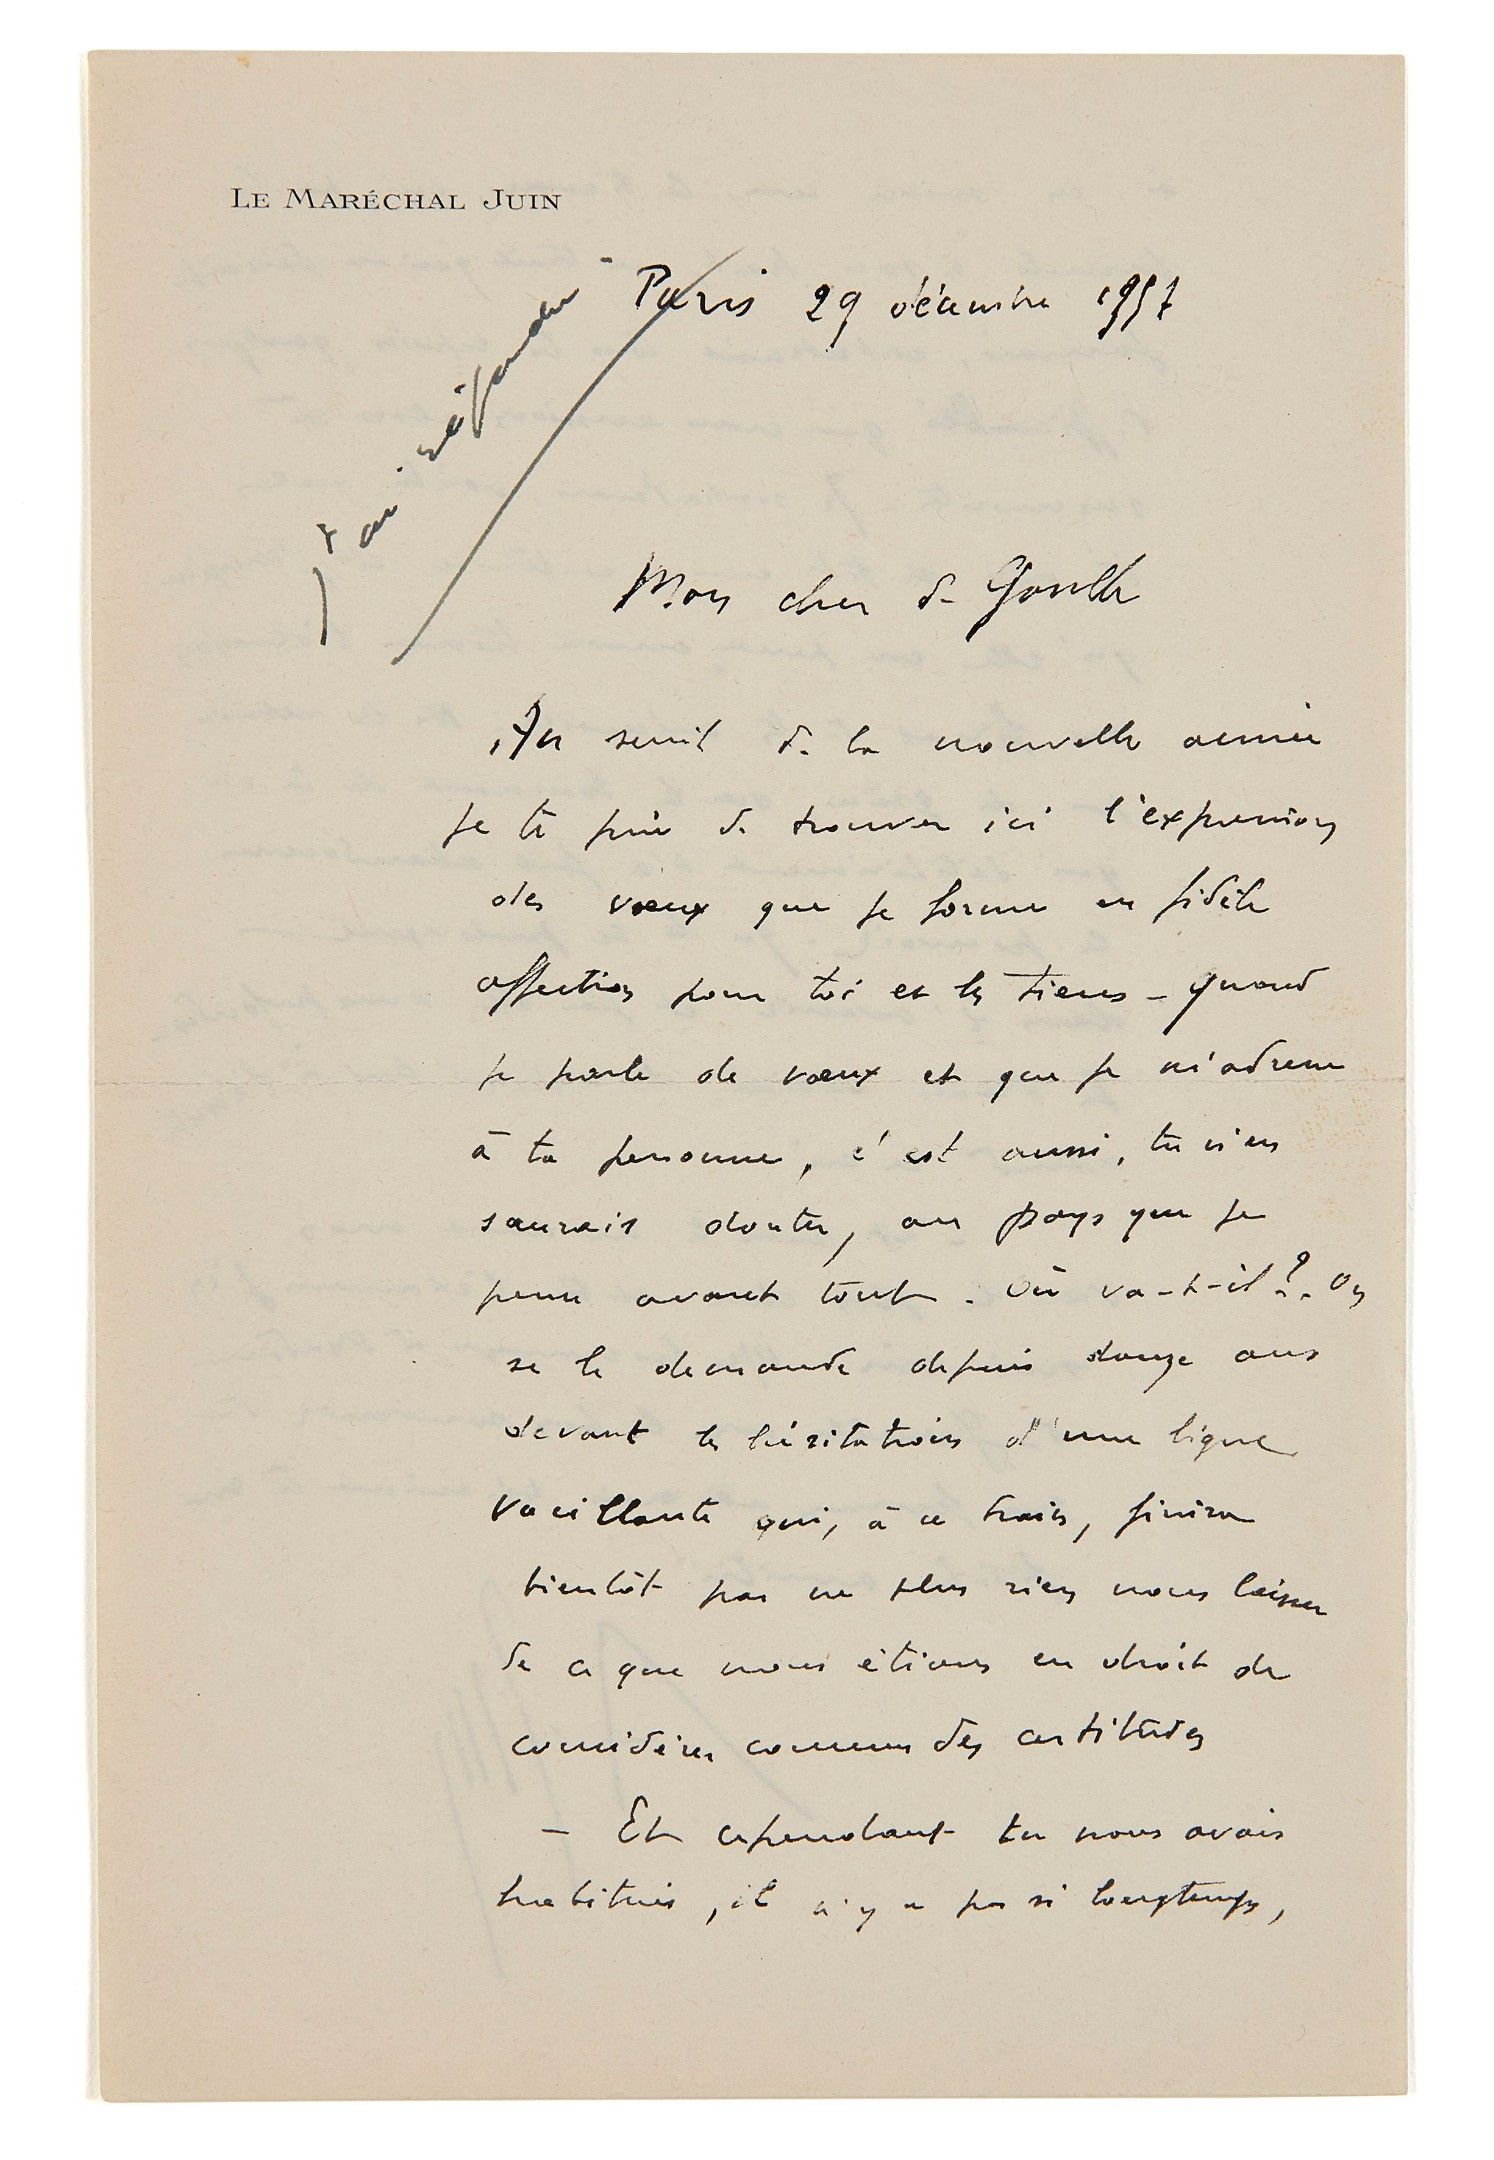 LE MARÉCHAL JUIN
Paris 29 décembre 1957
J'ai répondu
Mon cher de Gaulle
Au seuil de la nouvelle année
je te prie de trouver ici l'expression
des vœux que je forme en fidèle
affection pour toi et les tiens - Quand
je parle de vœux et que je m'adresse
à ta personne, c'est aussi, tu n'en
saurais douter, au pays que je
pense avant tout. Où va-t-il ?. On
se le demande depuis douze ans
devant les hésitations d'une ligne
vacillante qui, à ce train, finira
bientôt par ne plus rien nous laisser
de ce que nous étions en droit de
considérer comme des certitudes
- Et cependant tu nous avais
habitués, il n'y a pas si longtemps,